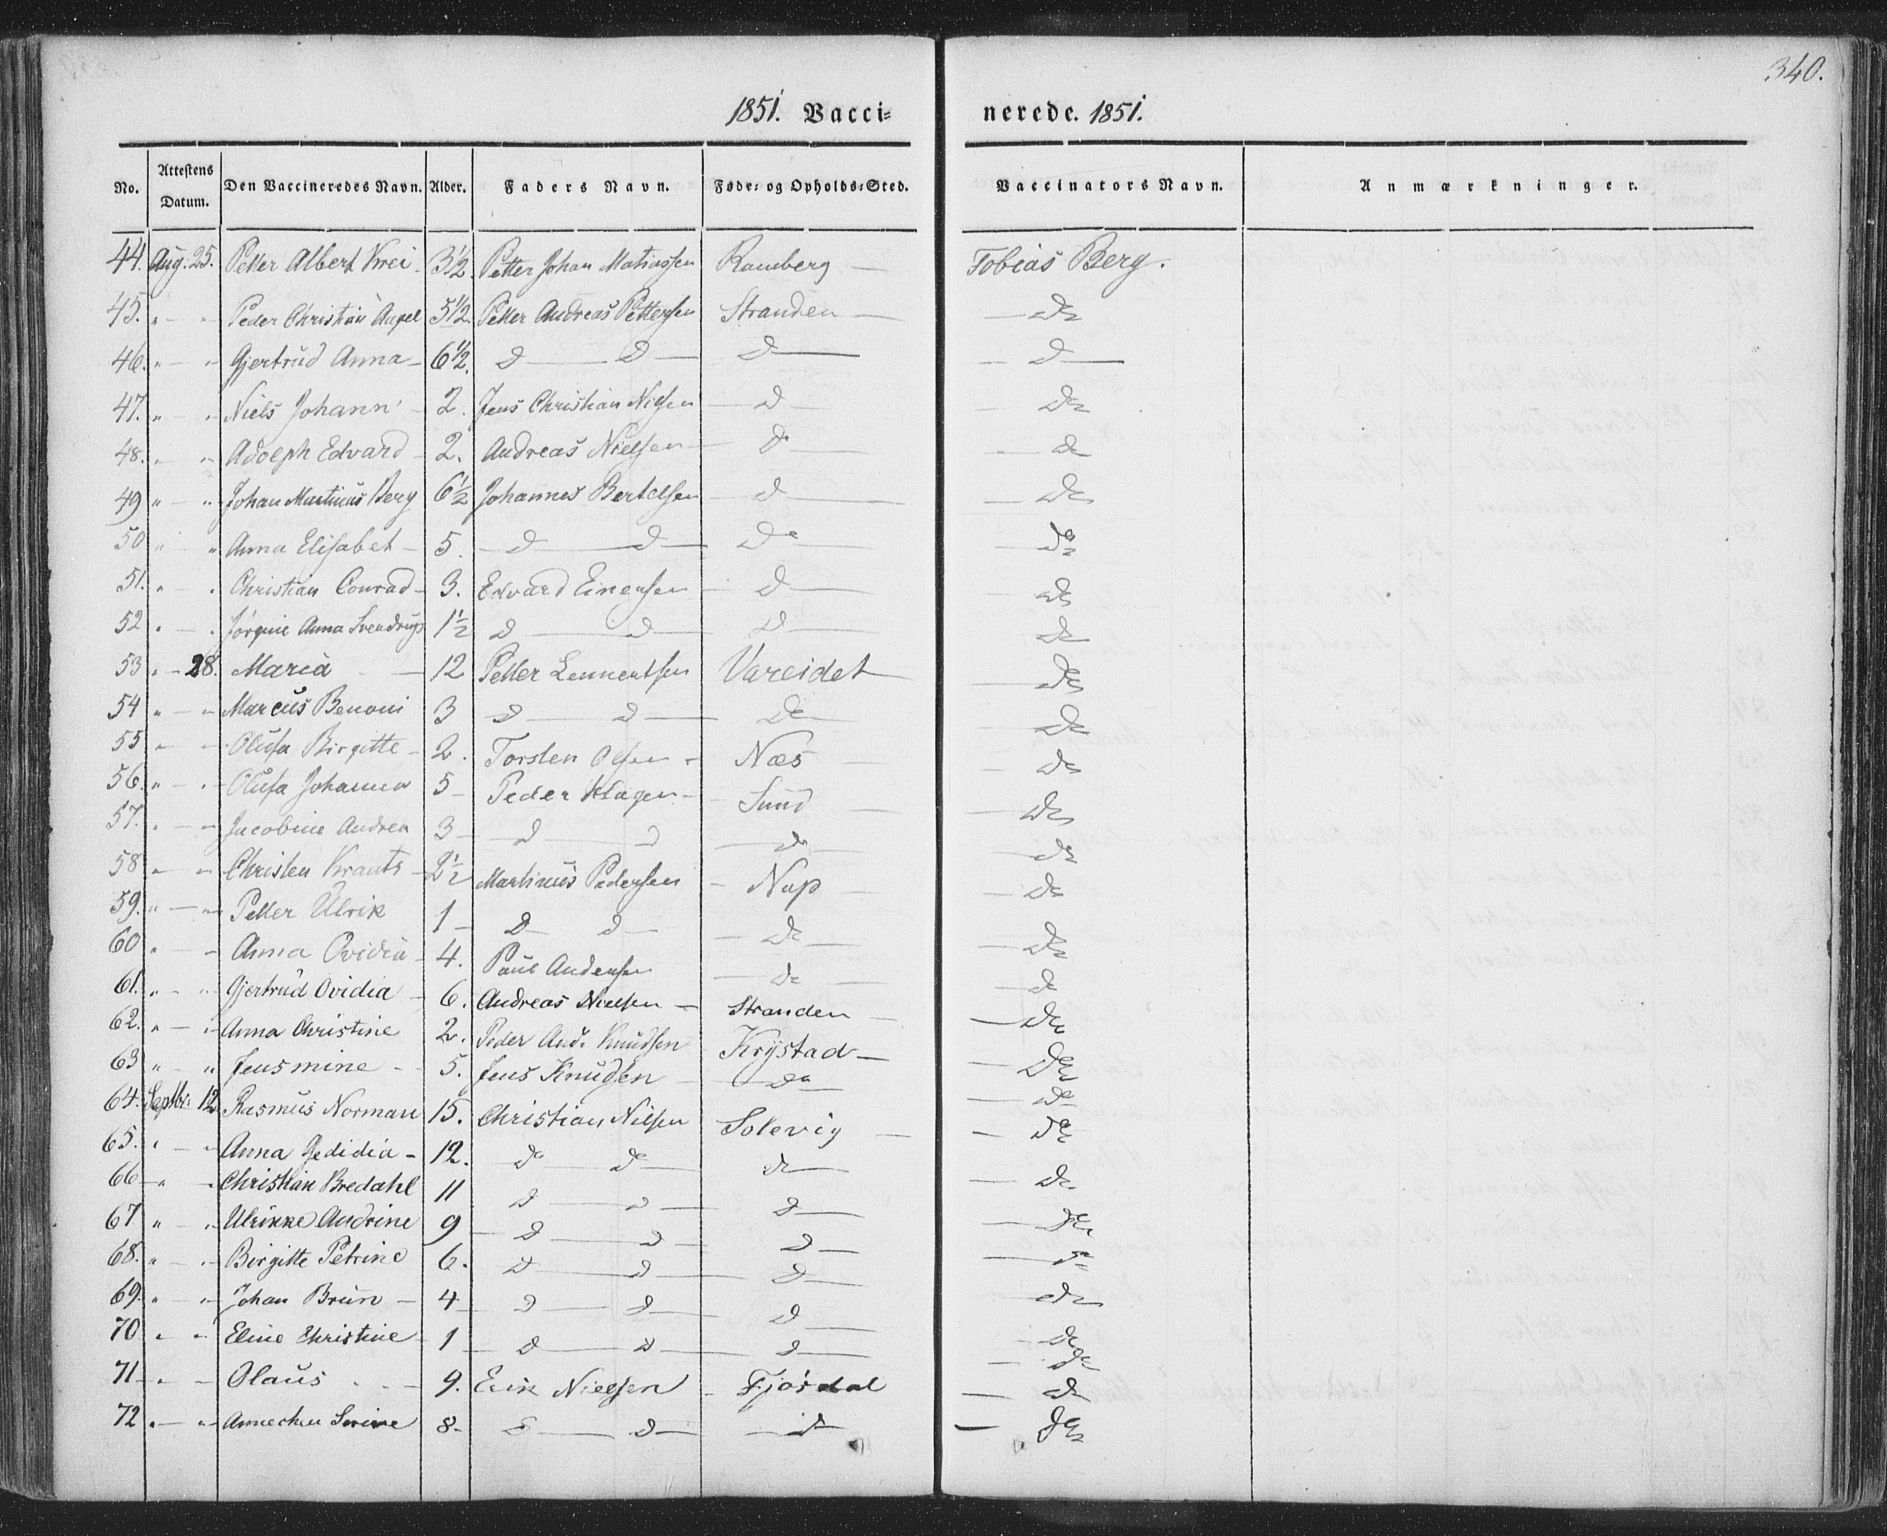 340.
1851. Vacci= nerede. 1851.
No. Attestens Datum. Den Vaccineredes Navn. Alder. Faders Navn. Føde= og Opholds=Sted. Vaccinators Navn. Anmærkninger.
44. Aug. 25. Petter Albert Krei 3 1/2 Petter Johan Matiassen Ramberg — Tobias Berg.
45. " — " Peder Christian Angel 5 1/2 Petter Andreas Pettersen Stranden — — Do
46. " — " Gjertrud Anna — 6 1/2. D — D — D — — D —
47. " — " Niels Johann — 2. Jens Christian Nielsen — D — — Do
48. " — " Adolph Edvard — 2. Andreas Nielsen — — Do — — Do
49 " — " Johan Martinus Berg 6 1/2 Johannes Bertelsen — D — — Do
50 " " Anna Elisabet — 5. — D — D — Do — — Do
51. " — " Christian Conrad — 3. Edvard Einersen — D — — Do
52 " — " Jörgine Anna Svendrup 1 1/2 D — D — D — — Do
53 " — 28. Maria — 12 Petter Lennertsen Vareidet — — Do
54 " — " Marcus Benoni 3 D — D — Do — — Do
55 " — " Olufa Birgitte — 2. Torsten Olsen — Næs — — Do
56. " — " Olufa Johanna 5 — Peder Hagen — Sund — — Do
57. " — " Jacobine Andrea 3 — D — D — Do — — Do
58 " — " Christen Krantz — 2 1/2 Martinus Pedersen — Nap — — Do
59. " — " Petter Ulrik 1 — D — D — — Do — — Do
60 " — Anna Ovidia — 4. Paul Andersen — Do — — Do
61. " — " Gjertrud Ovidia — 6. Andreas Nielsen — Stranden — — Do
62. " — " Anna Christine 2. Peder And: Knudsen Krystad — — Do
63 " — " Jensmine — 5. Jens Knudsen — Do — — Do
64. Septbr: 12 Rasmus Norman 15. Christian Nilsen Solevig — — Do
65. " — " Anna Gedidia — 12. Do — Do — Do — — Do
66 — " — " Christian Bredahl 11 D — D — D — — Do
67 " — " Ulrikke Andrine 9 — D — D — D — — Do
68. " — " Birgitte Petrine 6. D — D — D — — Do
69. " — " Johan Brun — 4 — D — D — D — Do
70 " — " Eline Christine — 1 — D — D — D — — Do
71 — " — Olaus — 9. Erik Nielsen — Fjördal — Do
72 " — " Annechen Serine 8 — D — D — — Do — Do